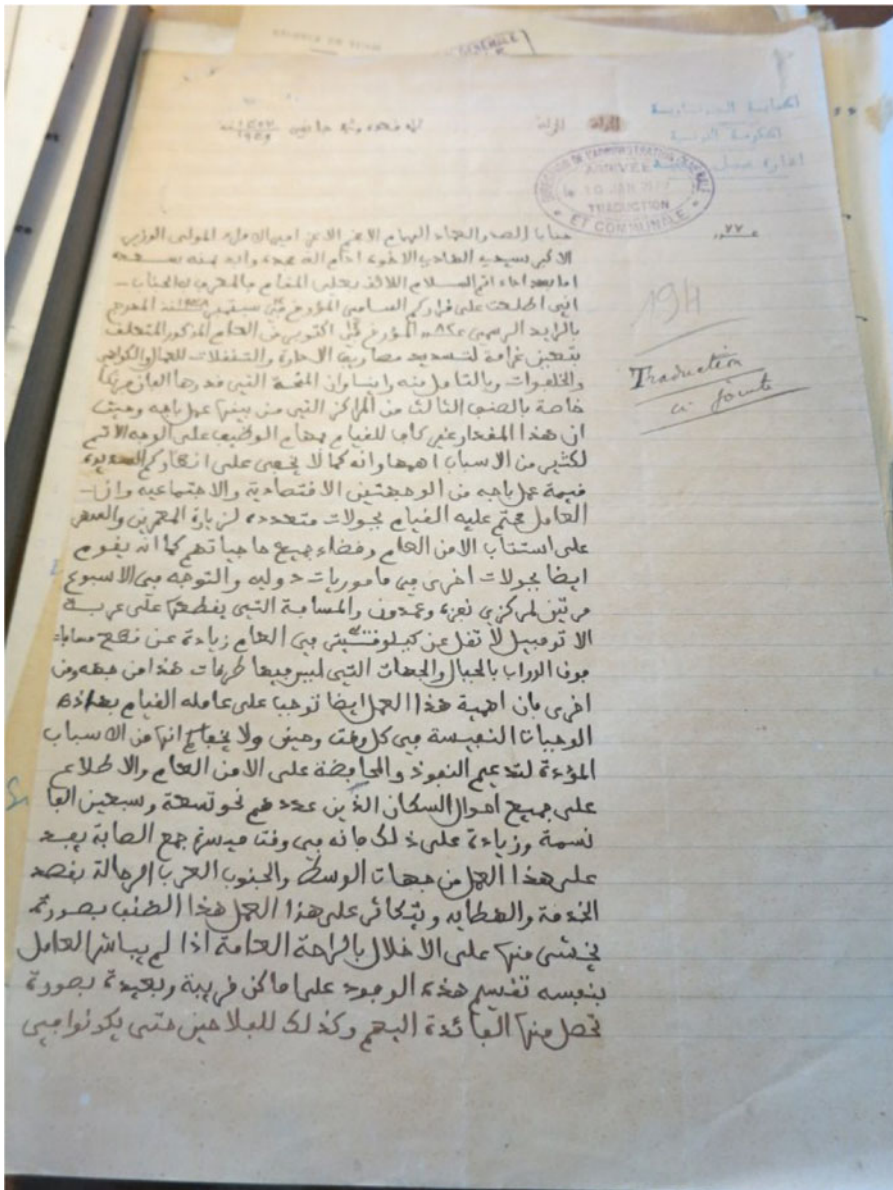 GENERALE
الحماية الفرنساوية
الحكومة التونسية
ادارة عمل
الحمد لله
DIRECTION DE L'ADMINISTRATION GENERALE
ARRIVÉE
le 10 JAN
TRADUCTION
ET COMMUNALE
عدد ٧٧
194
Traduction
ci jointe
جناب الصدر العماد الهمام الاعز امير الامراء المولى الوزير
الاكبر سيدي الهادي الاخوة ادام الله مجده وانه بمنه
اما بعد اداء اتم السلام اللائق بعلي المقام فالمعروض للجناب
اني اطلعت على قراركم السامي المؤرخ في سبتمبر سنة المدرج
بالرايد الرسمي عدد المؤرخ في اكتوبر من العام المذكور المتعلف
بتعيين غرامة لتسديد مصاريف الادارة والتنفلات للعمال والكواهي
والخلفوات وبالتامل منه راينا وان المنحة التي فدرها العان
خاصة بالصنف الثالث من المراكز التي من بينها عمل باجه وحيث
ان هذا المفدار غير كاف للفيام بمهام الوظيف على الوجه الاتم
لكثير من الاسباب اهمها وانه كما لا يخفى على انظاركم السديدة
فيمة عمل باجه من الوجهتين الافتصادية والاجتماعيه وان
العامل محتم عليه الفيام بجولات متعددة لزيارة المعمرين والسهر
على استتباب الامن العام وفضاء جميع حاجياتهم كما انه يفوم
ايضا بجولات اخرى في ماموريات دوليه والتوجه في الاسبوع
مرتين لمركزي نفزه وعمدون والمسافة التي يفطعها على عربة
الاتومبيل لا تفل عن كيلومتر في العام زيادة عن فطع مسافات
فوف الدواب بالجبال والجهات التي ليس فيها طرفات هذا من جهه ومن
اخرى فان اهمية هذا العمل ايضا توجب على عامله الفيام بهاذه
الوجبات النفيسة في كل وفت وحين ولا يخفاكم انها من الاسباب
المؤدة لتدعيم النفوذ والمحافظة على الامن العام والاطلاع
على جميع احوال السكان الذين عددهم نحو تسعة وسبعين الفا
نسمة وزيادة على ذلك فانه في وفت ميسرة جمع الصابة يفد
على هذا العمل من جهات الوسط والجنوب العرب الرحالة بفصد
الخدمة والهطايه ويتكاثر على هذا العمل هذا الصنف بصورة
يخشى منها على الاخلال بالراحة العامة اذا لم يباشر العامل
بنفسه تفسيم هذه الوفود على اماكن فريبة وبعيدة بصورة
تحصل منها الفائدة اليهم وكذلك للفلاحين حتى يكونوا في